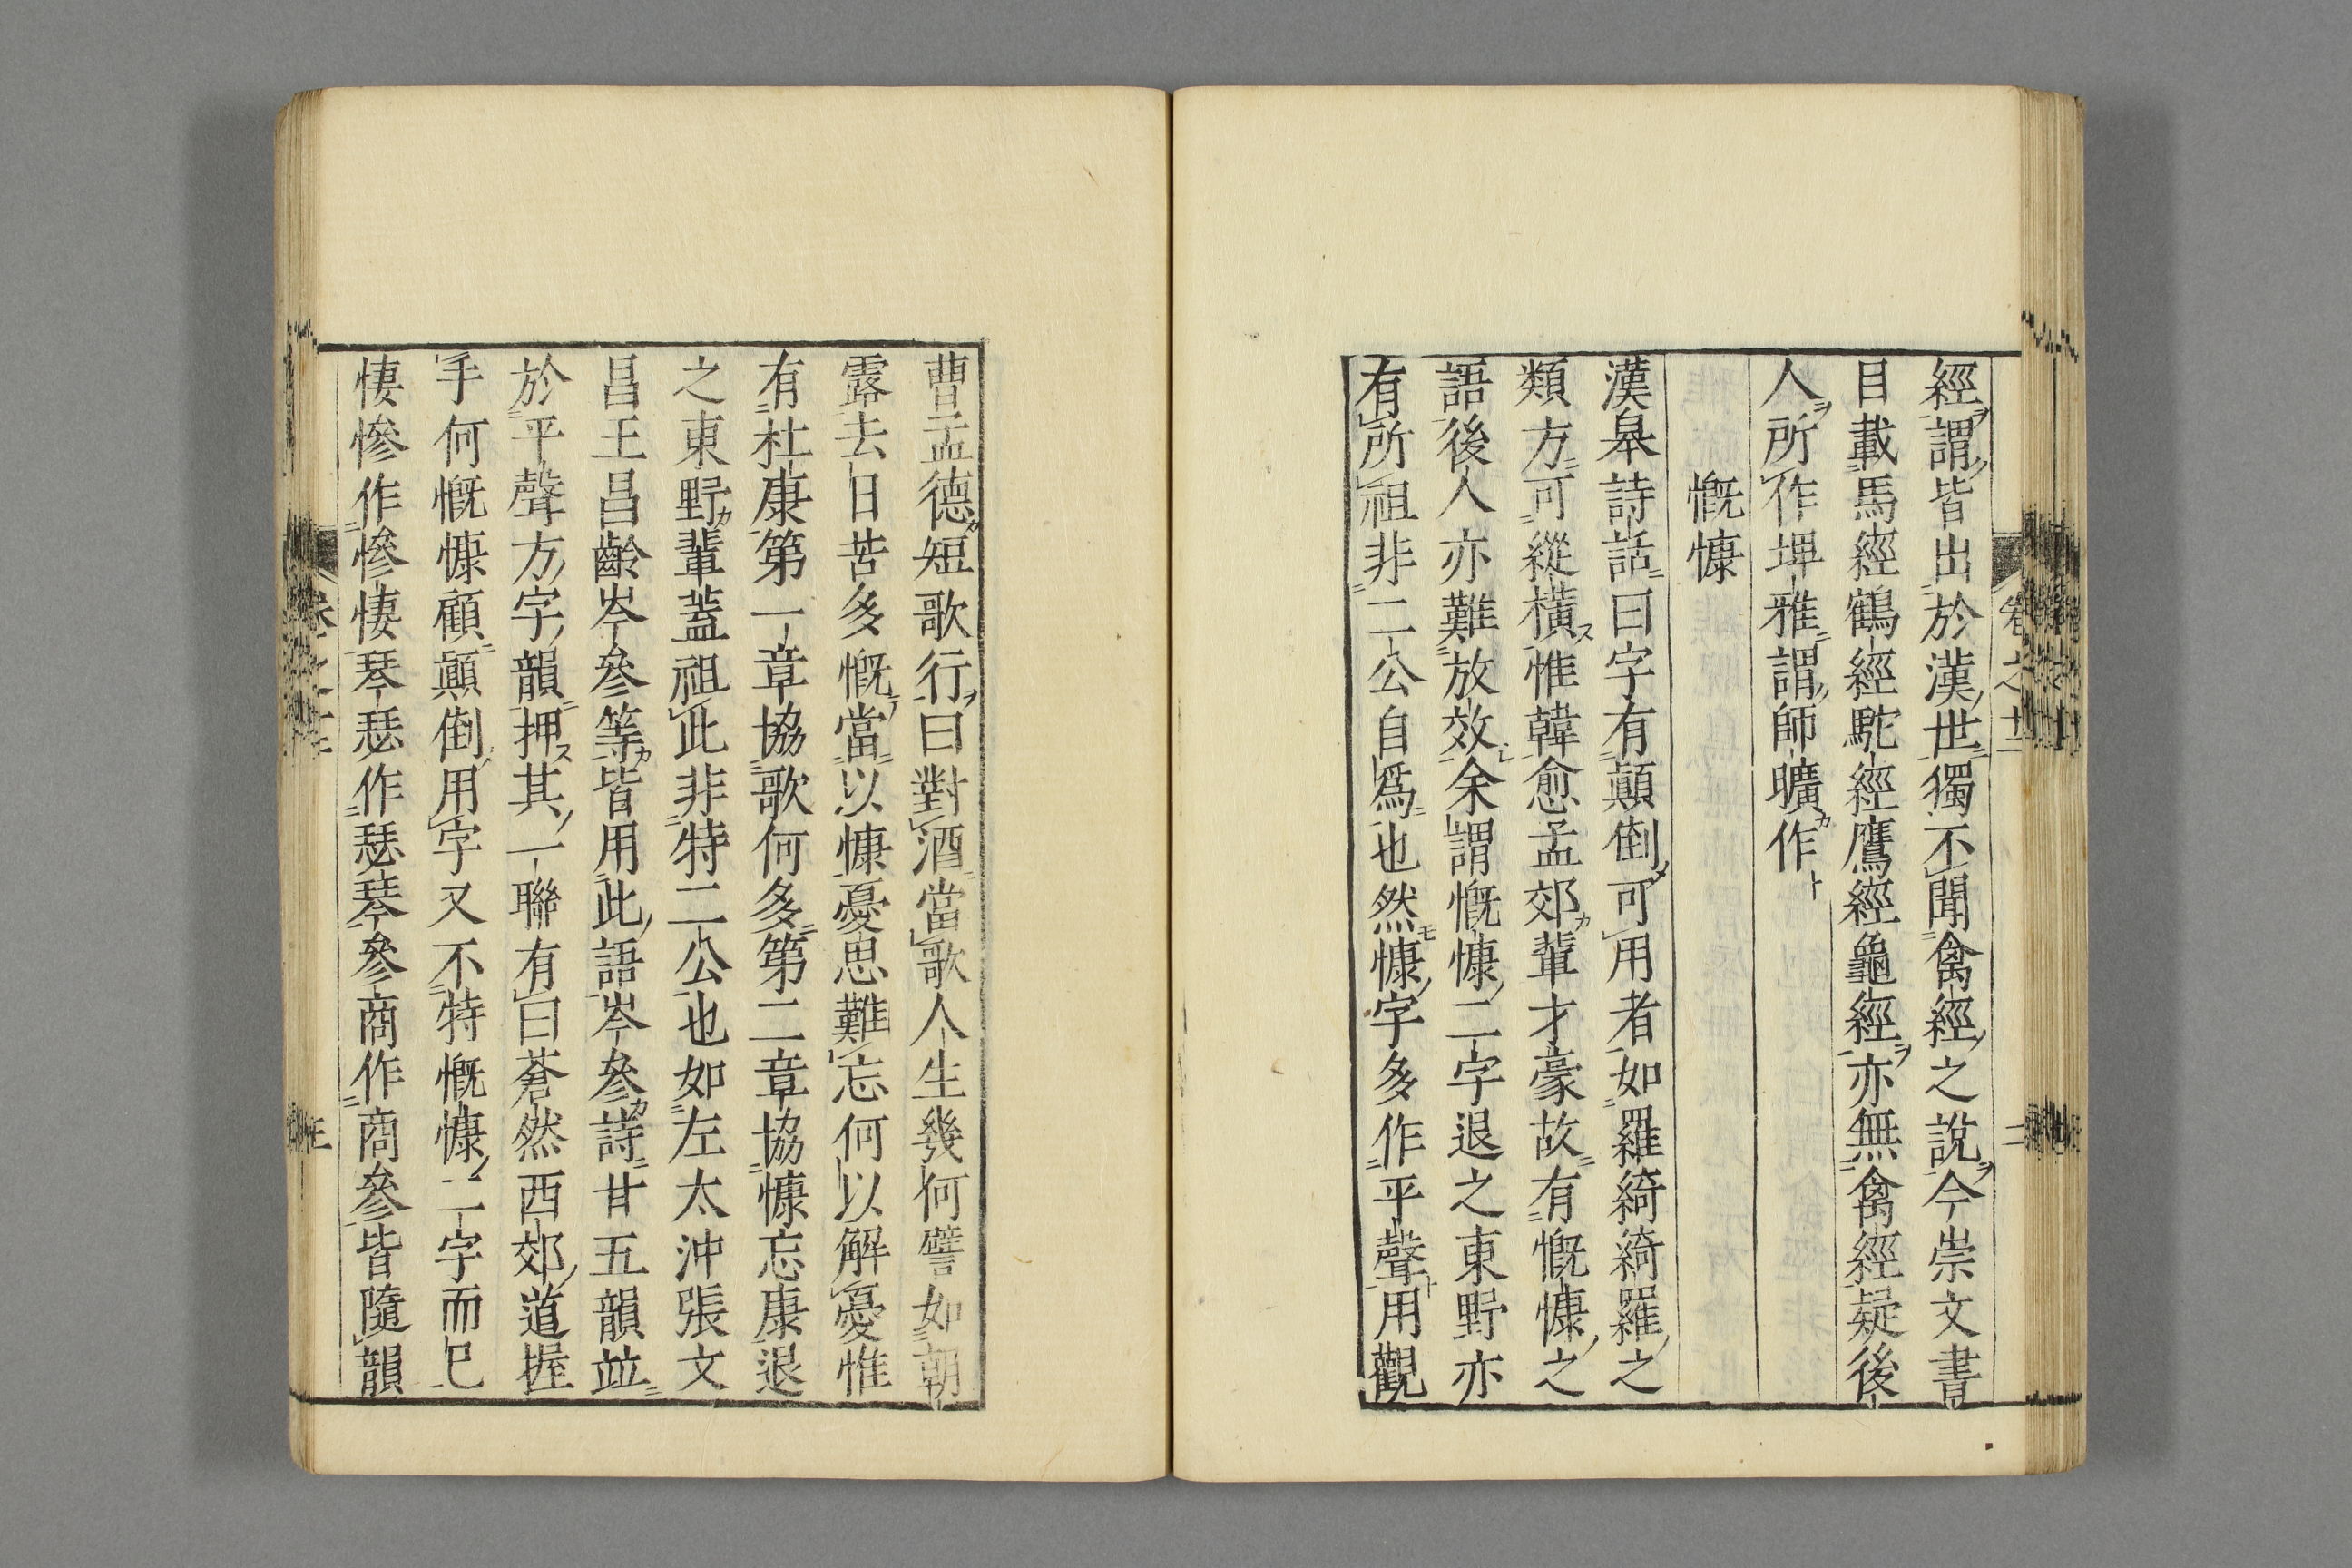 經謂皆出於漢世獨不聞禽經之說今崇文書
目載馬經鶴經駝經鷹經龜經亦無禽經疑後
人所作埤雅謂師曠作
慨慷
漢皋詩話曰字有顛倒可用者如羅綺綺羅之
類方可縱橫惟韓愈孟郊輩才豪故有慨慷之
語後人亦難放效余謂慨慷二字退之東野亦
有所祖非二公自爲也然慷字多作平聲用觀
曹孟德短歌行曰對酒當歌人生幾何譬如朝
露去日苦多慨當以慷憂思難忘何以解憂惟
有杜康第一章協歌何多第二章協慷忘康退
之東野輩蓋祖此非特二公也如左太沖張文
昌王昌齡岑參等皆用此語岑參詩廿五韻竝
於平聲方字韻押其一聯有曰蒼然西郊道握
手何慨慷顧顛倒用字又不特慨慷二字而已
悽慘作慘悽琴瑟作瑟琴參商作商參皆隨韻
卷之十二
二